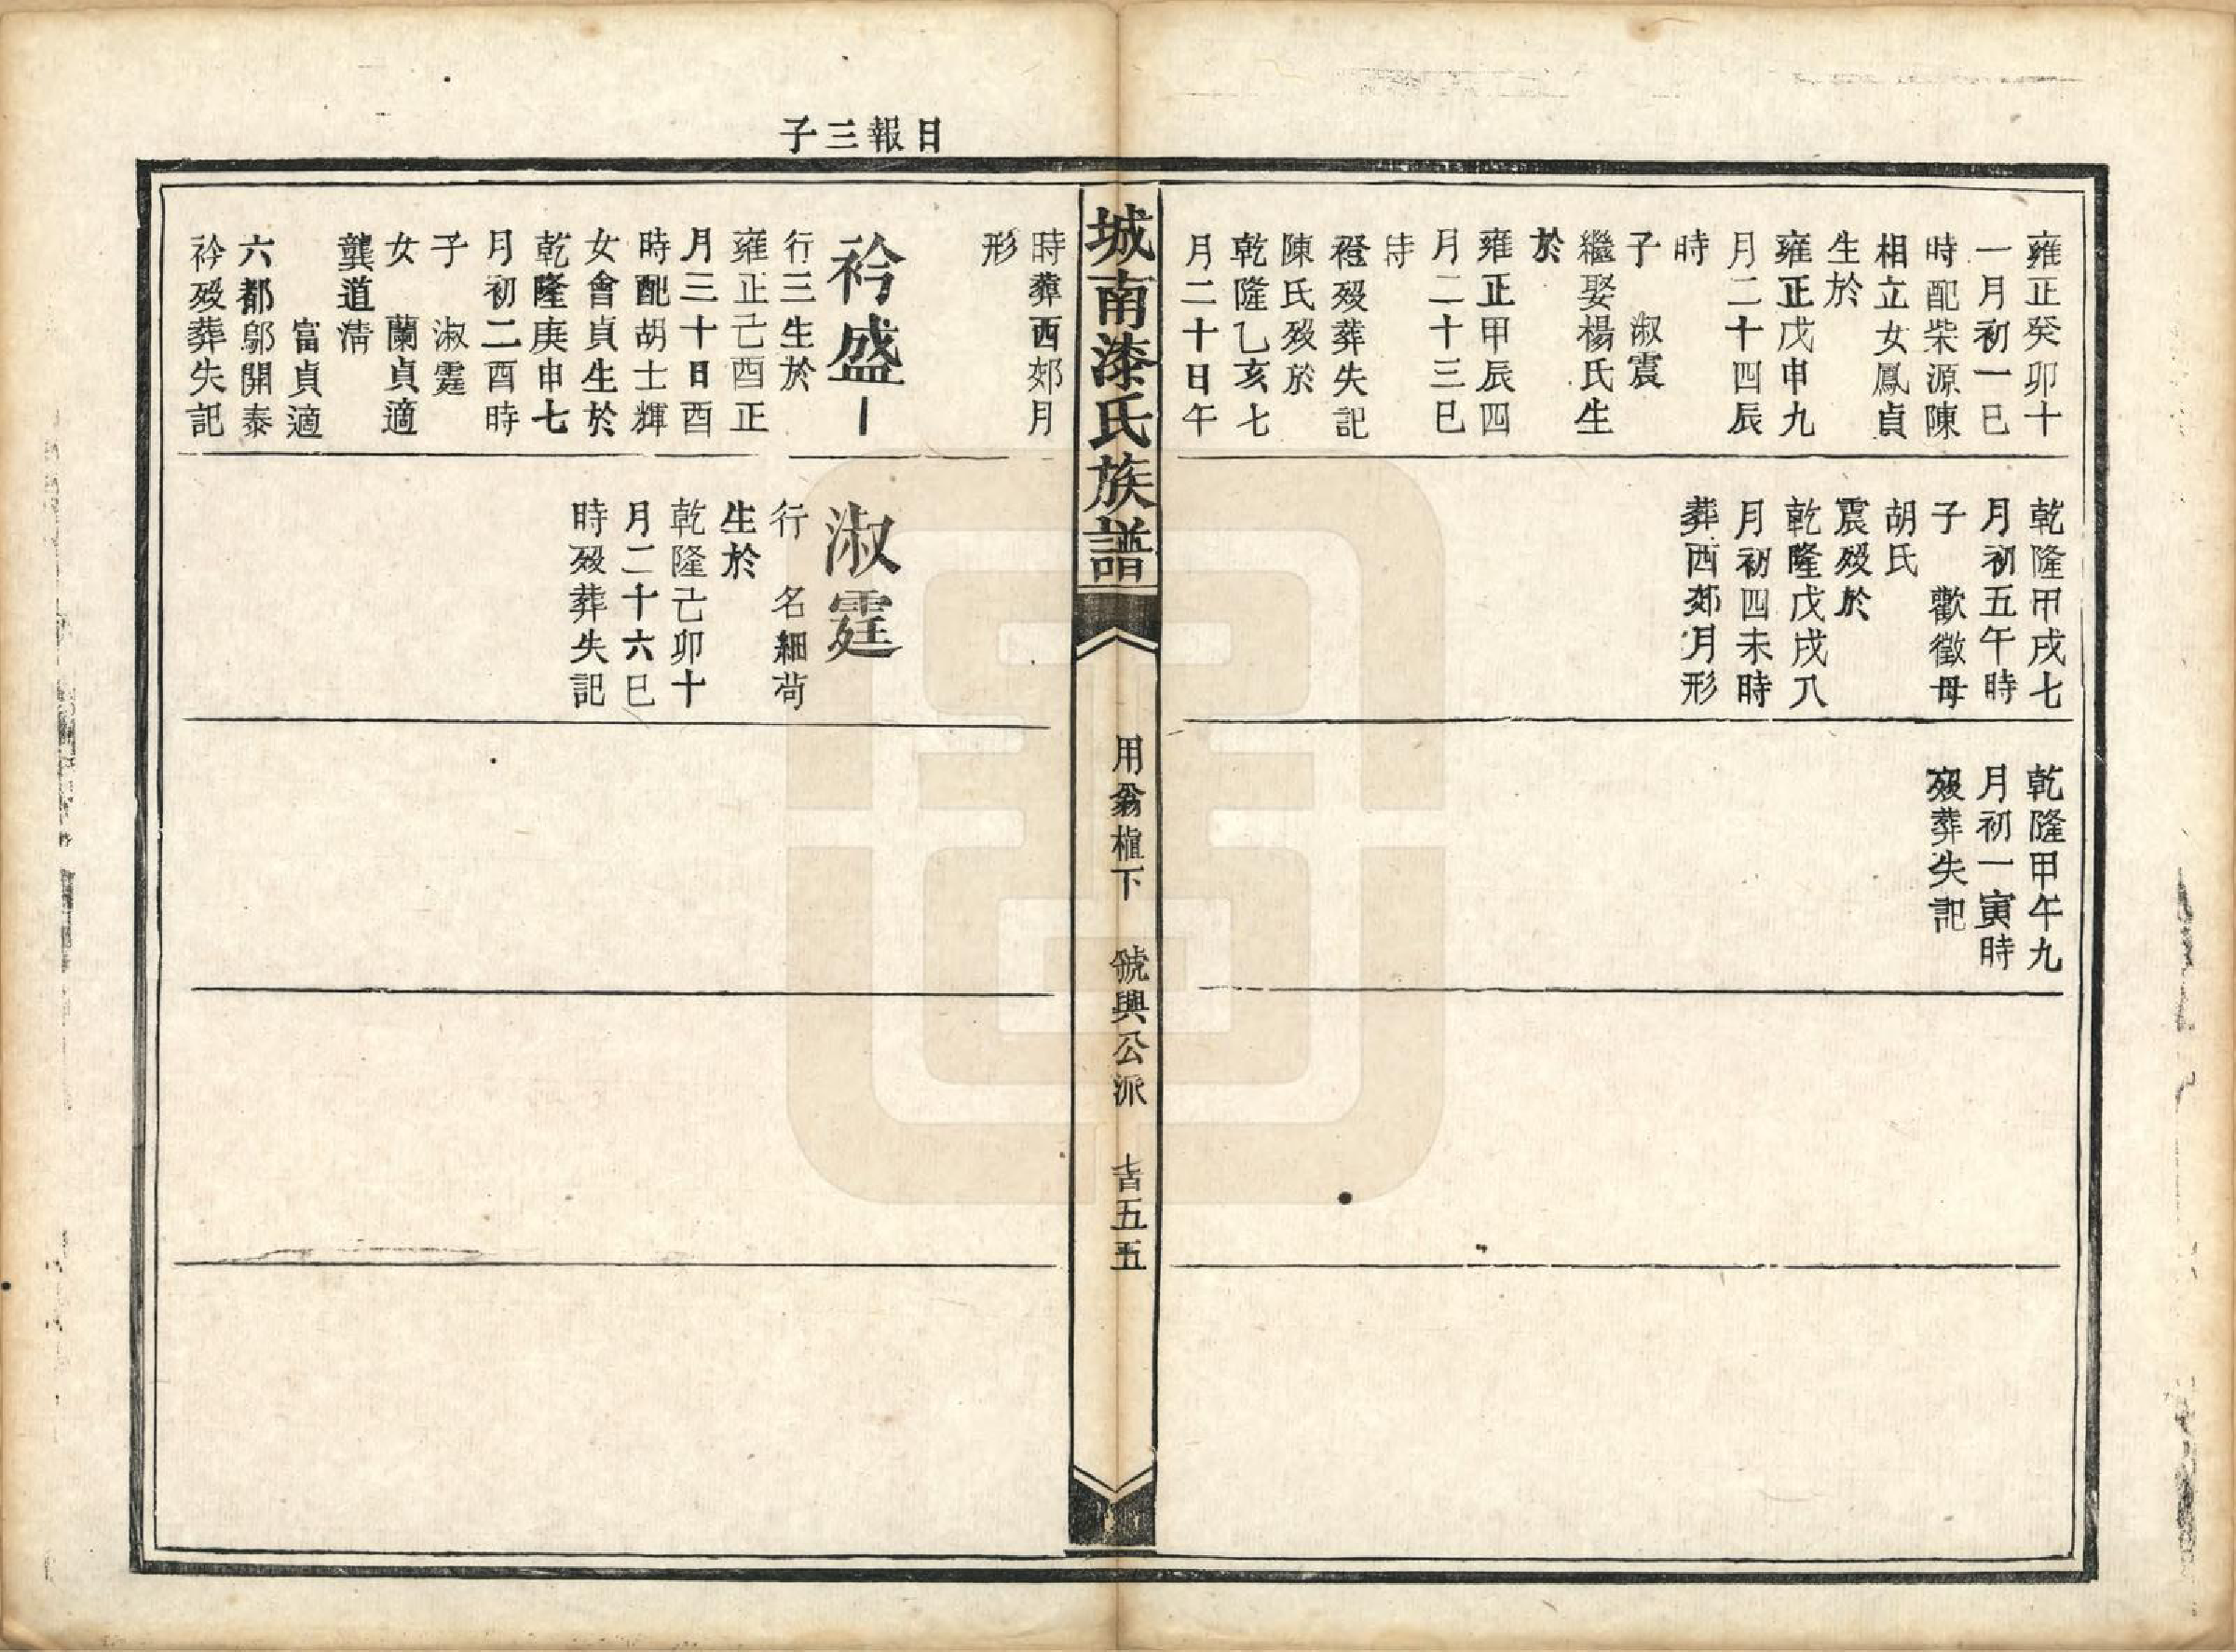 雍正癸卯十
一月初一巳
時配柴源陳
相立女鳳貞
生於
雍正戊申九
月二十四辰
時
子　淑震
繼娶楊氏生
於
雍正甲辰四
月二十三巳
時
䘲歿葬失記
陳氏歿於
乾隆乙亥七
月二十日午
乾隆甲戌七
月初五午時
子　歡徵母
胡氏
震歿於
乾隆戊戌八
月初四未時
葬西郊月形
乾隆甲午九
月初一寅時
歿葬失記
城南漆氏族譜
用翁櫃下　號興公派　吉五五
日報三子
時葬西郊月
形
衿盛
行三生於
雍正己酉正
月三十日酉
時配胡士輝
女會貞生於
乾隆庚申七
月初二酉時
子　淑霆
女　蘭貞適
龔道清
富貞適
六都鄔開泰
衿歿葬失記
淑霆
行　名細苟
生於
乾隆己卯十
月二十六巳
時歿葬失記